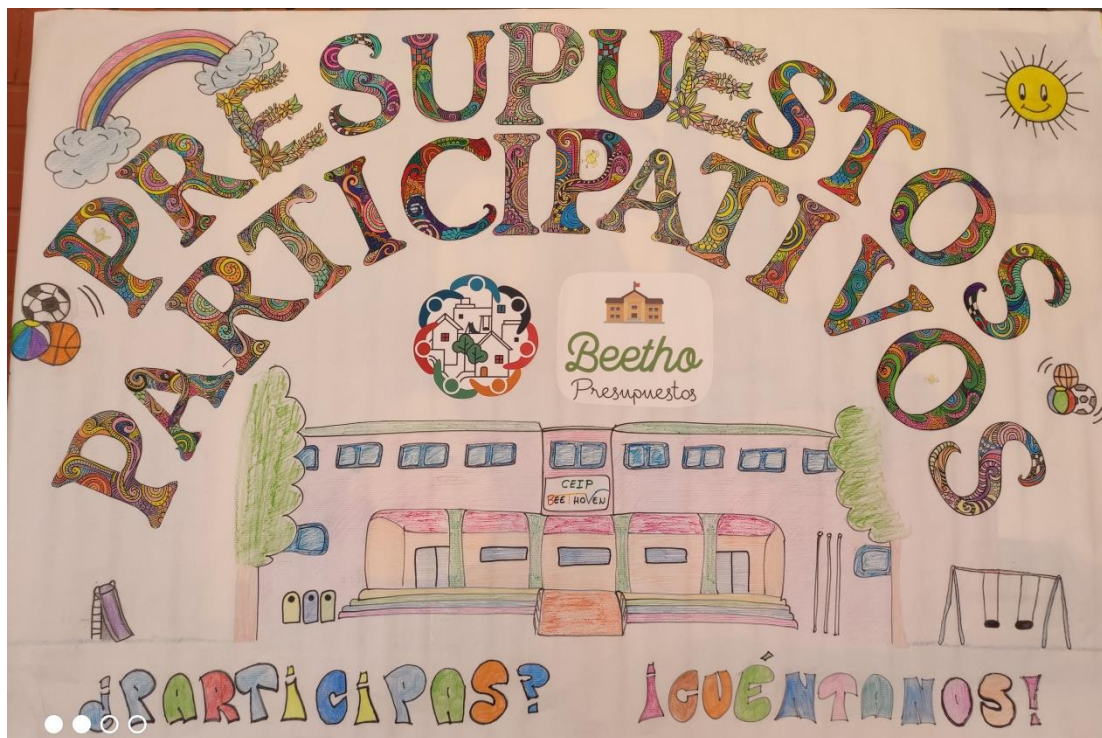 PRESUPUESTOS
PARTICIPATIVOS
Beetho
Presupuestos
CEIP
BEETHOVEN
¿PARTICIPAS? ¡CUÉNTANOS!